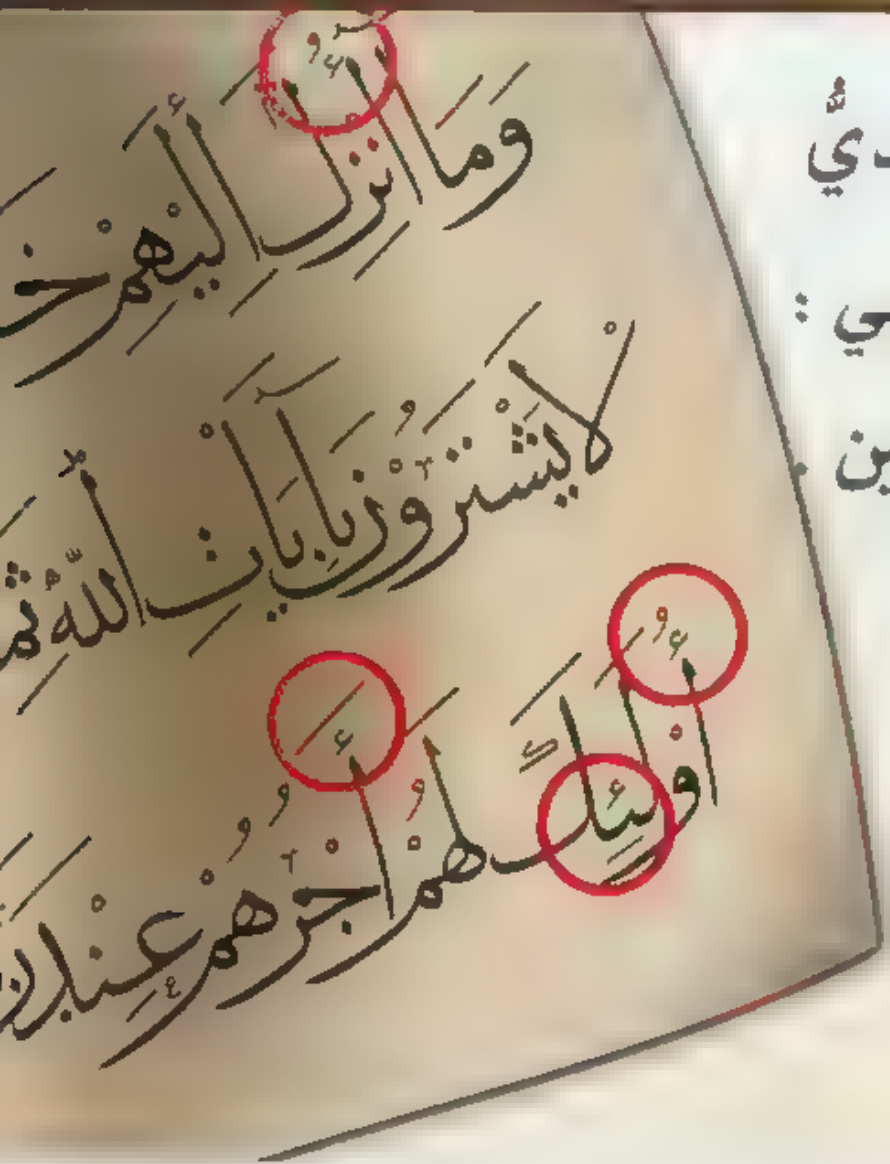 وَمَا أُنْزِلَ إِلَيْهِمْ خَ
لَا يَشْتَرُوْنَ بِآيَاتِ اللّٰهِ ثَمَ
أُوْلٰئِكَ لَهُمْ أَجْرُهُمْ عِنْدَ رَ
يٌّ
ي :
ين .